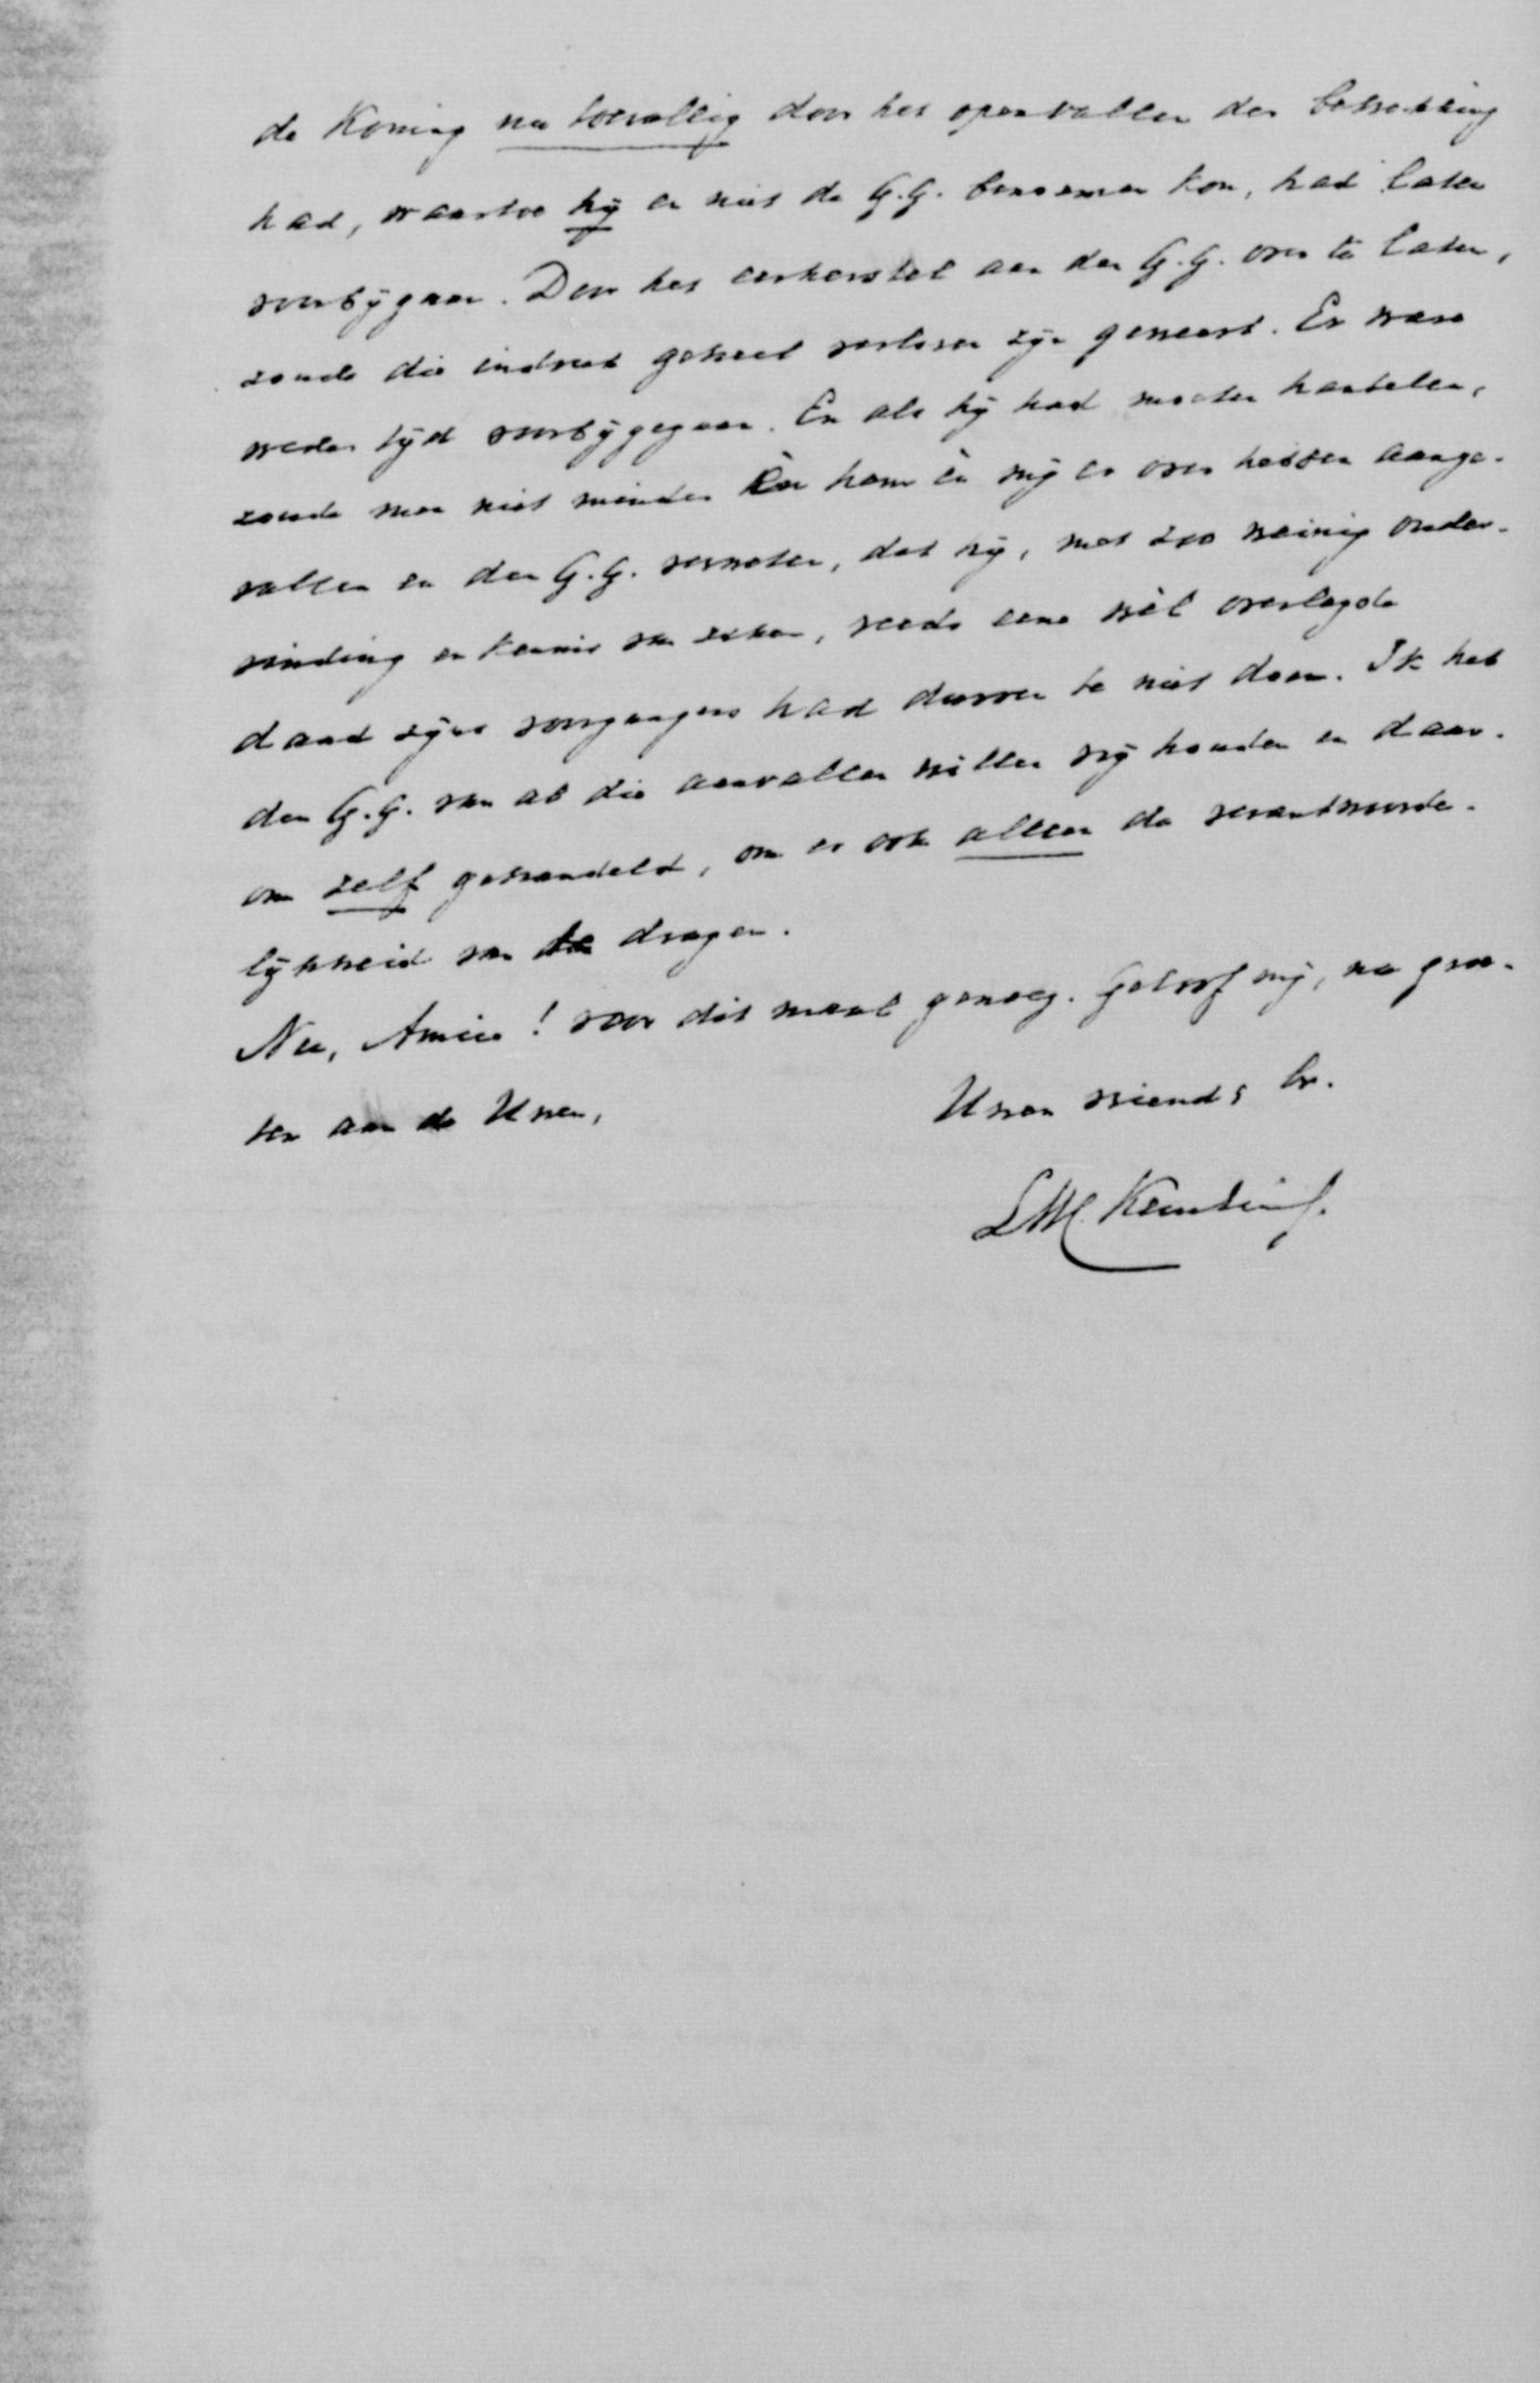 de Koning nu toevallig door het openvallen der betrekking
had, waartoe hij en niet de G.G. benoemen kon, had laten
voorbijgaan. Door het eerherstel aan den G.G. over te laten,
zoude die indruk geheel verloren zijn geweest. Er ware
weder tijd voorbijgegaan. En als hij had moeten handelen,
zoude men niet minder èn hem èn mij er over hebben aange-
vallen en den G.G. verweten, dat hij, met zoo weinig onder-
vinding en kennis van zaken, reeds eene wèl overlegde
daad zijns voorgangers had durven te niet doen. Ik heb
den G.G. van al die aanvallen willen vrij houden en daar-
om zelf gehandeld, om er ook alleen de verantwoorde-
lijkheid van te dragen.
Nu, Amice! voor dit maal genoeg. Geloof mij, na groe-
ten aan de Uwen,
Uwen vriend